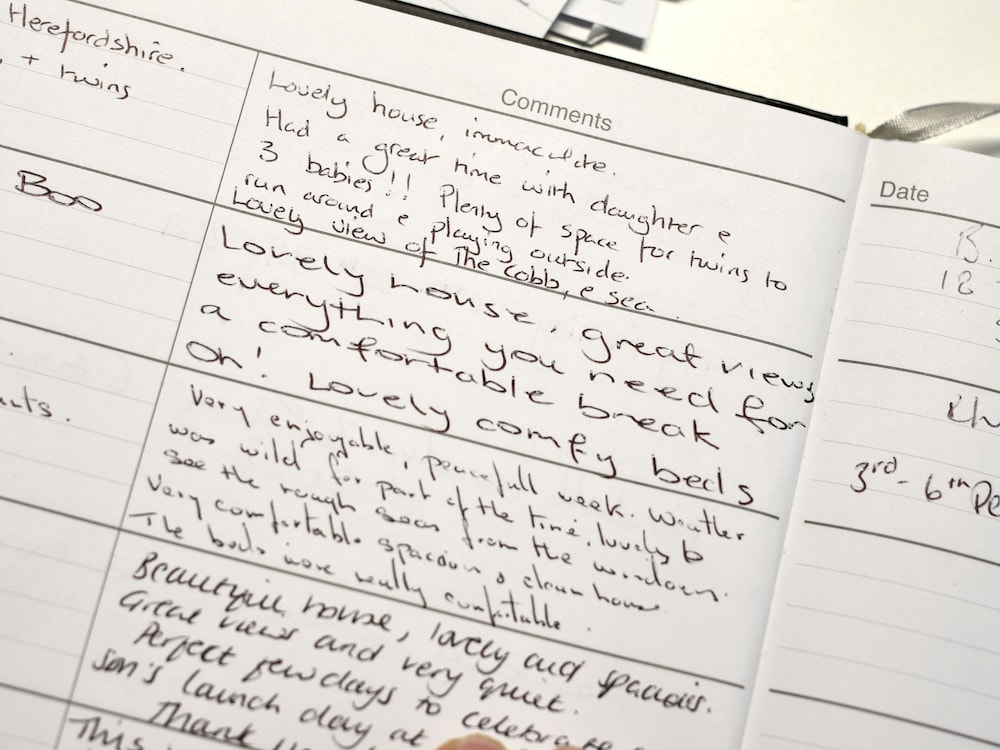 Herefordshire.
+ twins
Boo
Comments
Lovely house, immaculate.
Had a great time with daughter e
3 babies!! Plenty of space for twins to
run around e playing outside.
Lovely view of The Cobb, e sea.
Lovely house, great views
everything you need for
a comfortable break
Oh! Lovely comfy beds
Very enjoyable, peacefull week. Weather
was wild for part of the time, lovely to
see the rough seas from the windows.
Very comfortable spacious & clean house.
The beds were really comfortable.
Beautiful house, lovely and spacious.
Great views and very quiet.
Perfect few days to celebrate
son's launch day at
Thank
This
Date
18
3rd - 6th De